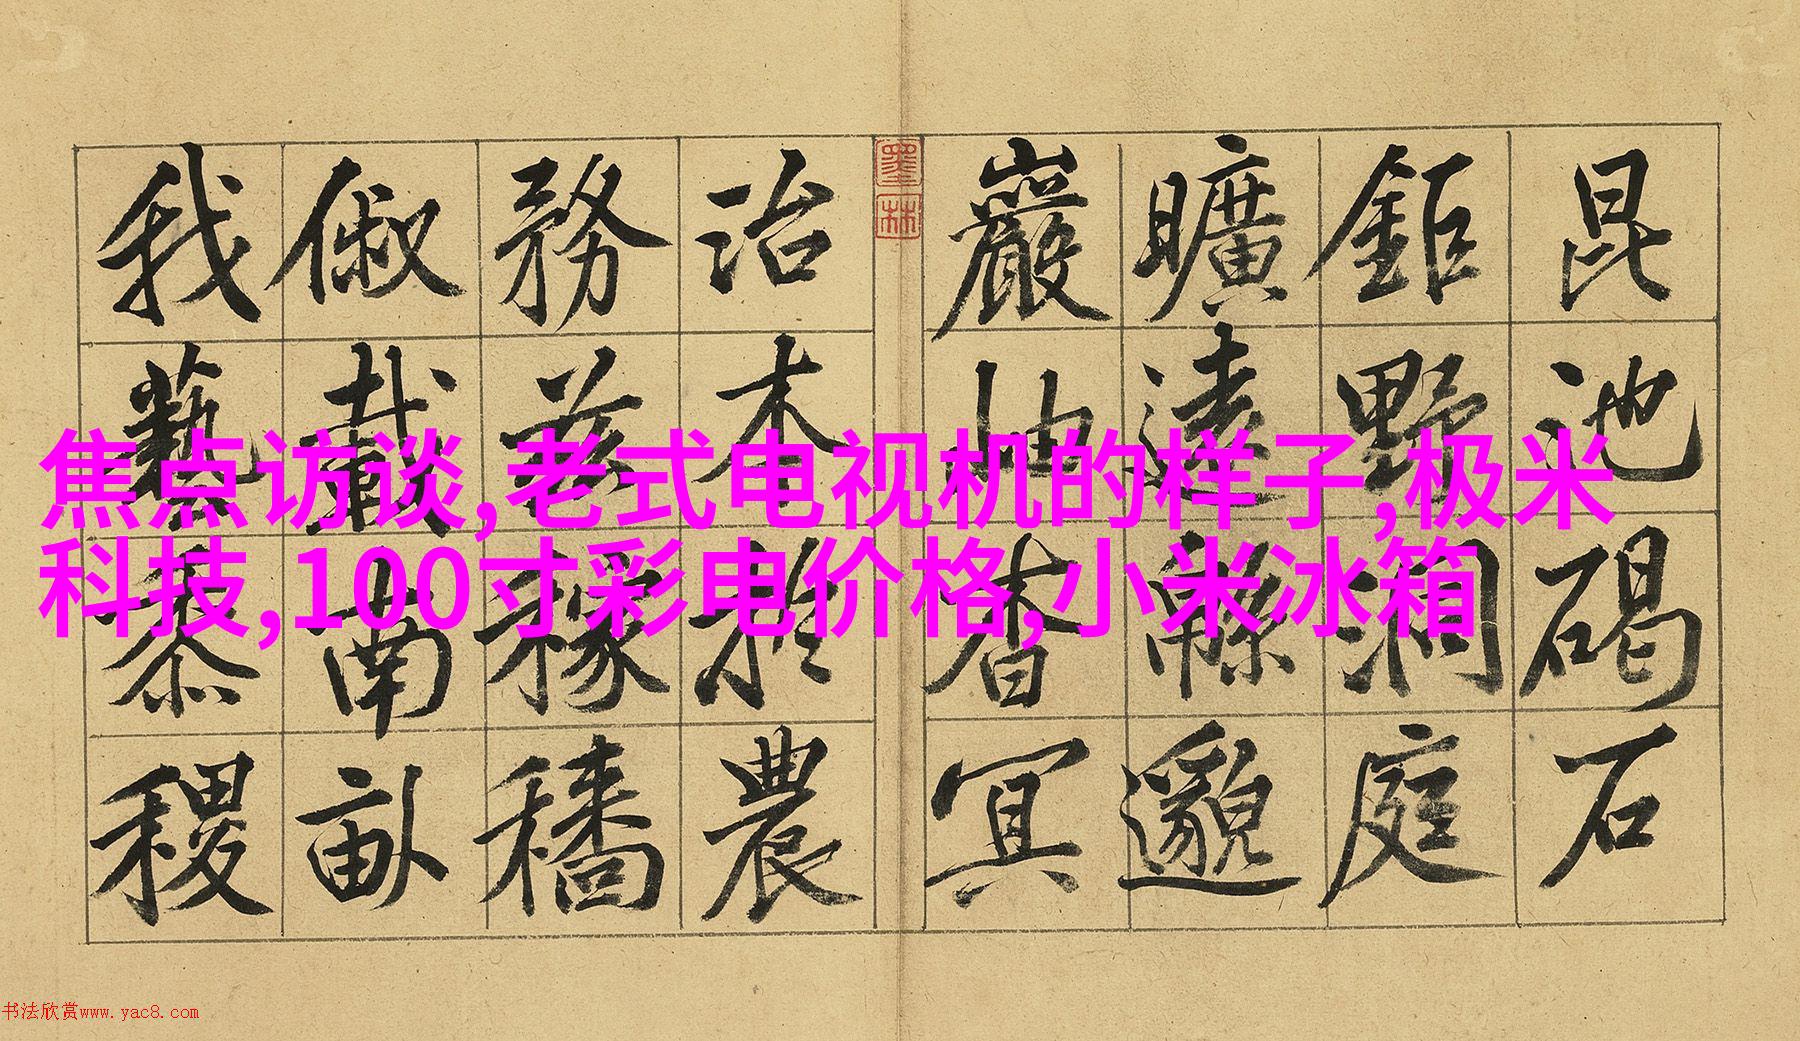 昆池碣石
鉅野洞庭
曠遠緜邈
巖岫杳冥
墨林
治本於農
務茲稼穡
俶載南畝
我藝黍稷
焦点访谈,老式电视机的样子,极米
科技,100寸彩电价格,小米冰箱
书法欣赏www.yac8.com